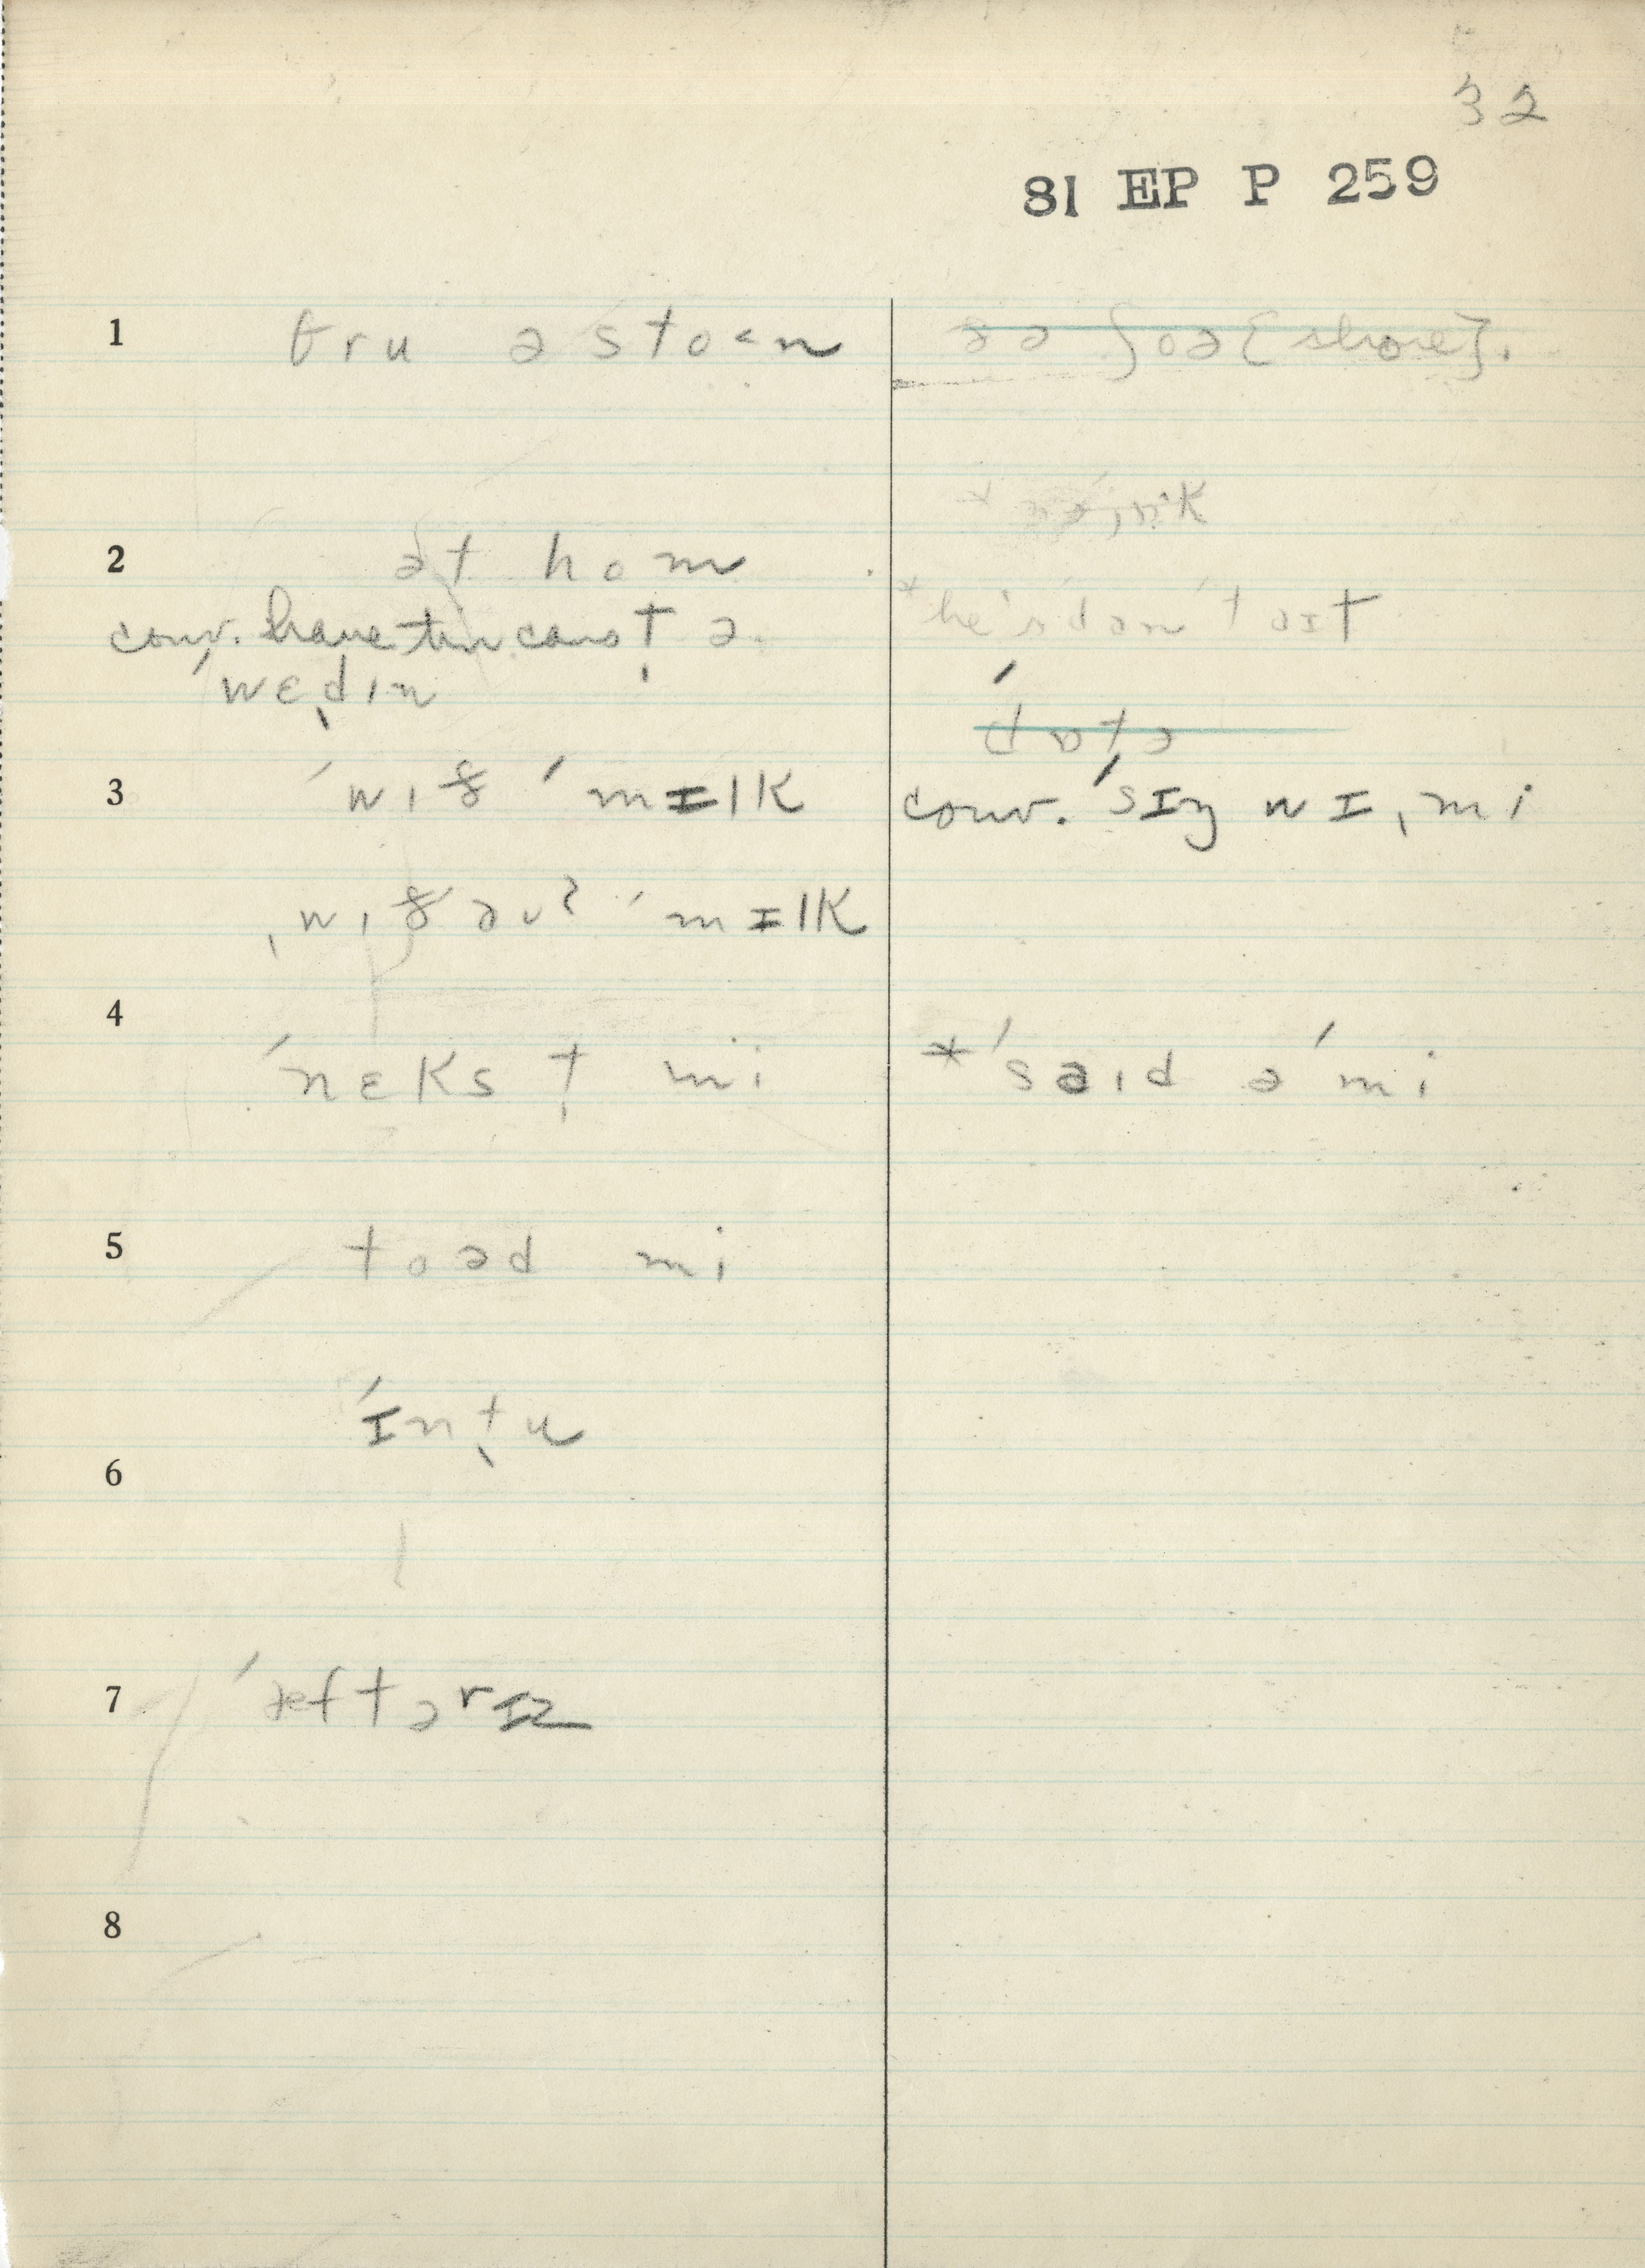 32
81 EP P 259
1 θru ə sto˂n
ðə ʃoə [shore].
2 ət hom
conv. have tin cans t̩ ə
ˈwɛd̩ɪn
3 ˈwɪð ˈmɪlk
conv. ˈsɪŋ wɪ ˌmi
ˌwɪðəuʔ ˈmɪlk
4
ˈnɛkst̩ mi
* ˈsaɪd ə ˈmi
5 toəd mi
ˈɪnt̬u
6
7 ˈæftərɪz
8